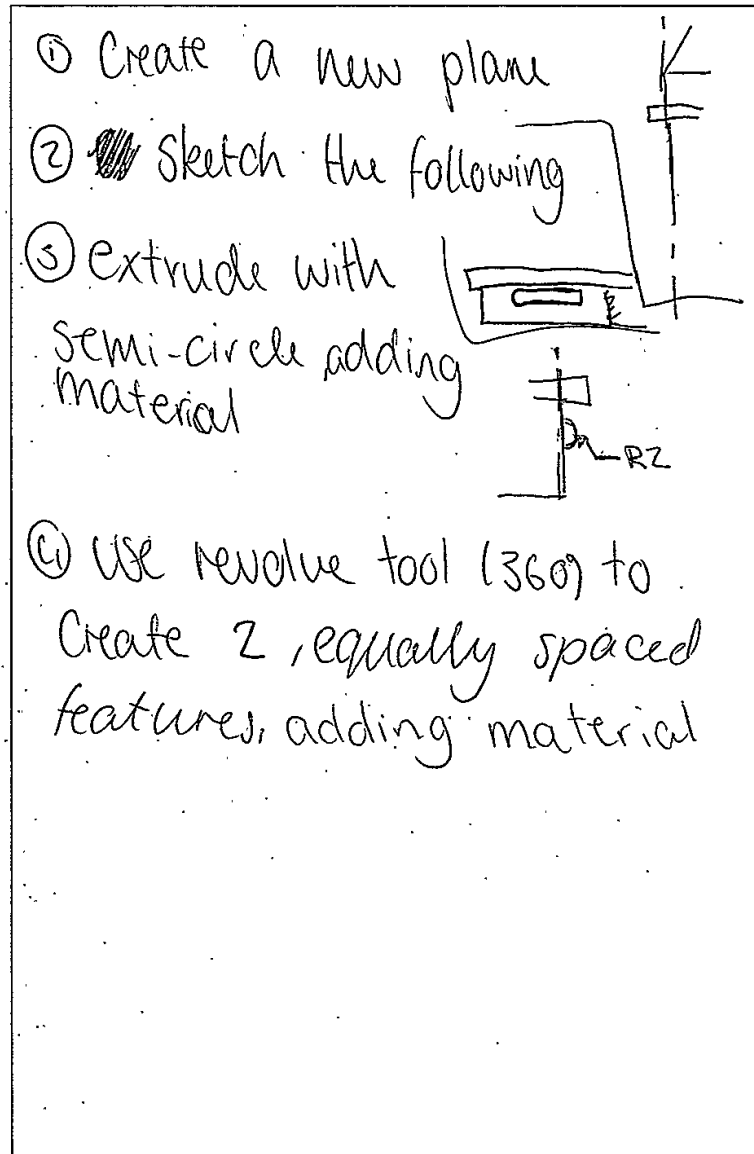 ① Create a new plane
② Sketch the following
③ extrude with
semi-circle, adding
material
R2
④ Use revolve tool (360°) to
Create 2, equally spaced
features, adding material